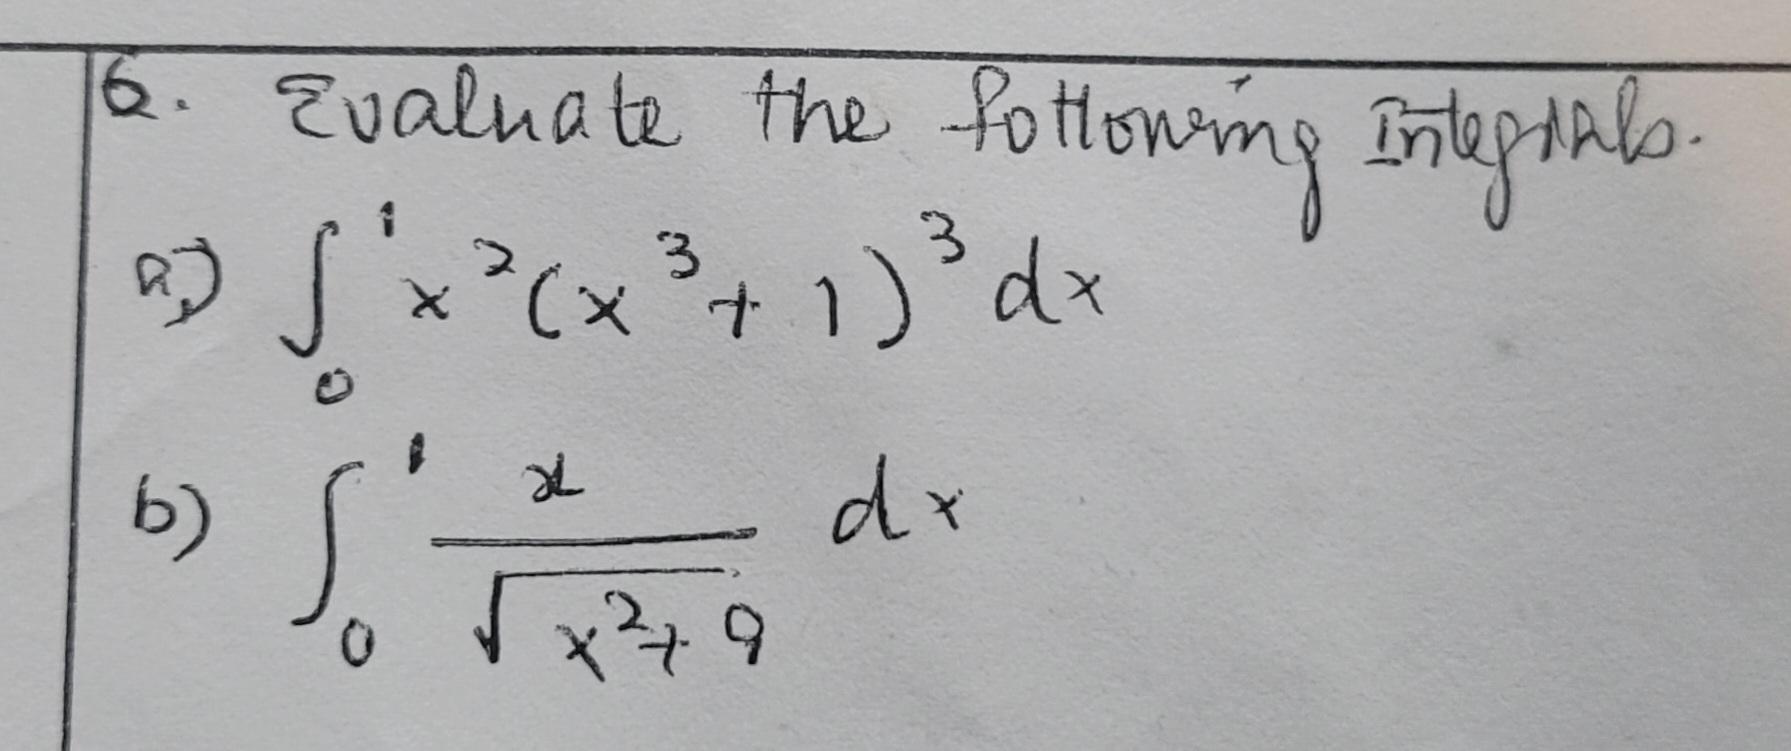 6. Evaluate the following Integrals.
a) ∫₀¹ x²(x³+1)³ dx
b) ∫₀¹ x/√(x²+9) dx